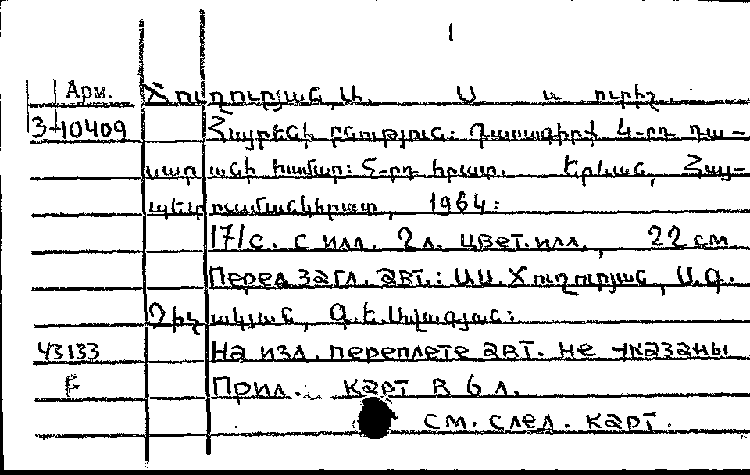 1
Арм. Խուդուրյան, Ա. Ս և ուրիշ.
3-10409 Հայրենի բնություն: Դասագիրք 4-րդ դա-
սարանի համար: 5-րդ հրատ. Երևան, Հայ-
պետուսմանկհրատ, 1964:
171с. с илл. 2 л. цвет. илл., 22 см
Перед загл. авт.: Ա.Ս. Խուդուրյան, Ս.Գ.
Գ.Ե.Ավագյան:
43133 На изл. переплете авт. не указаны
Прил. карт в 6 л.
см. след. карт.